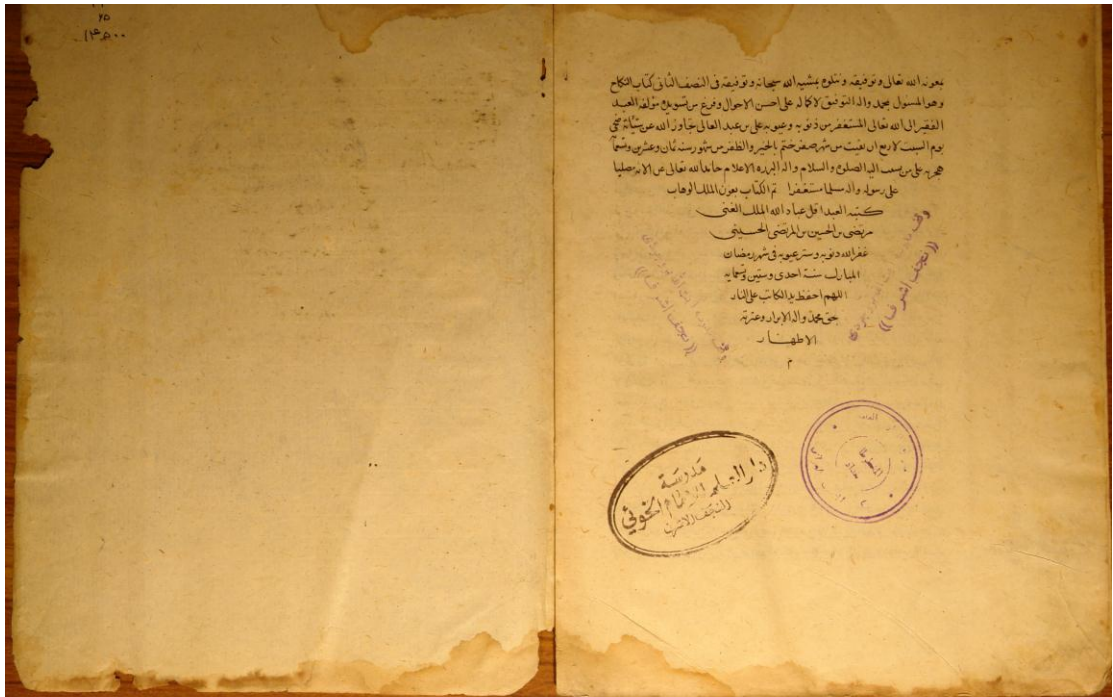 بعونه الله تعالى وتوفيقه ونتلوه بمشيه الله سبحانه وتوفيقه فى النصف الثانى كتاب النكاح
وهو المسئول بمحمد واله التوفيق لاكماله على احسن الاحوال وفرغ من تسويده مؤلفه العبد
الفقير الى الله تعالى المستغفر من ذنوبه وعيوبه على بن عبد العالى تجاوز الله عن سيأته
يوم السبت لاربع ان بقيت من شهر صفر ختم بالخير والظفر من شهور سنه ثمان وعشرين وتسمآ
هجريه على من نسبت اليه الصلوة والسلام واله البرره الاعلام حامدا لله تعالى مصليا
على رسوله واله مسلما مستغفرا تم الكتاب بعون الملك الوهاب
كتبه العبد اقل عباد الله الملك الغنى
مرتضى بن الحسين بن المرتضى الحسينى
غفر الله ذنوبه وستر عيوبه فى شهر رمضان
المبارك سنة احدى وستين وتسمايه
اللهم احفظ يد الكاتب على النار
بحق محمد واله الابرار وعترته
الاطهار
م
مدرسة
دار العلم للإمام الخوئي
النجف الاشرف
((نجف اشرف))
((نجف اشرف))
٢٥